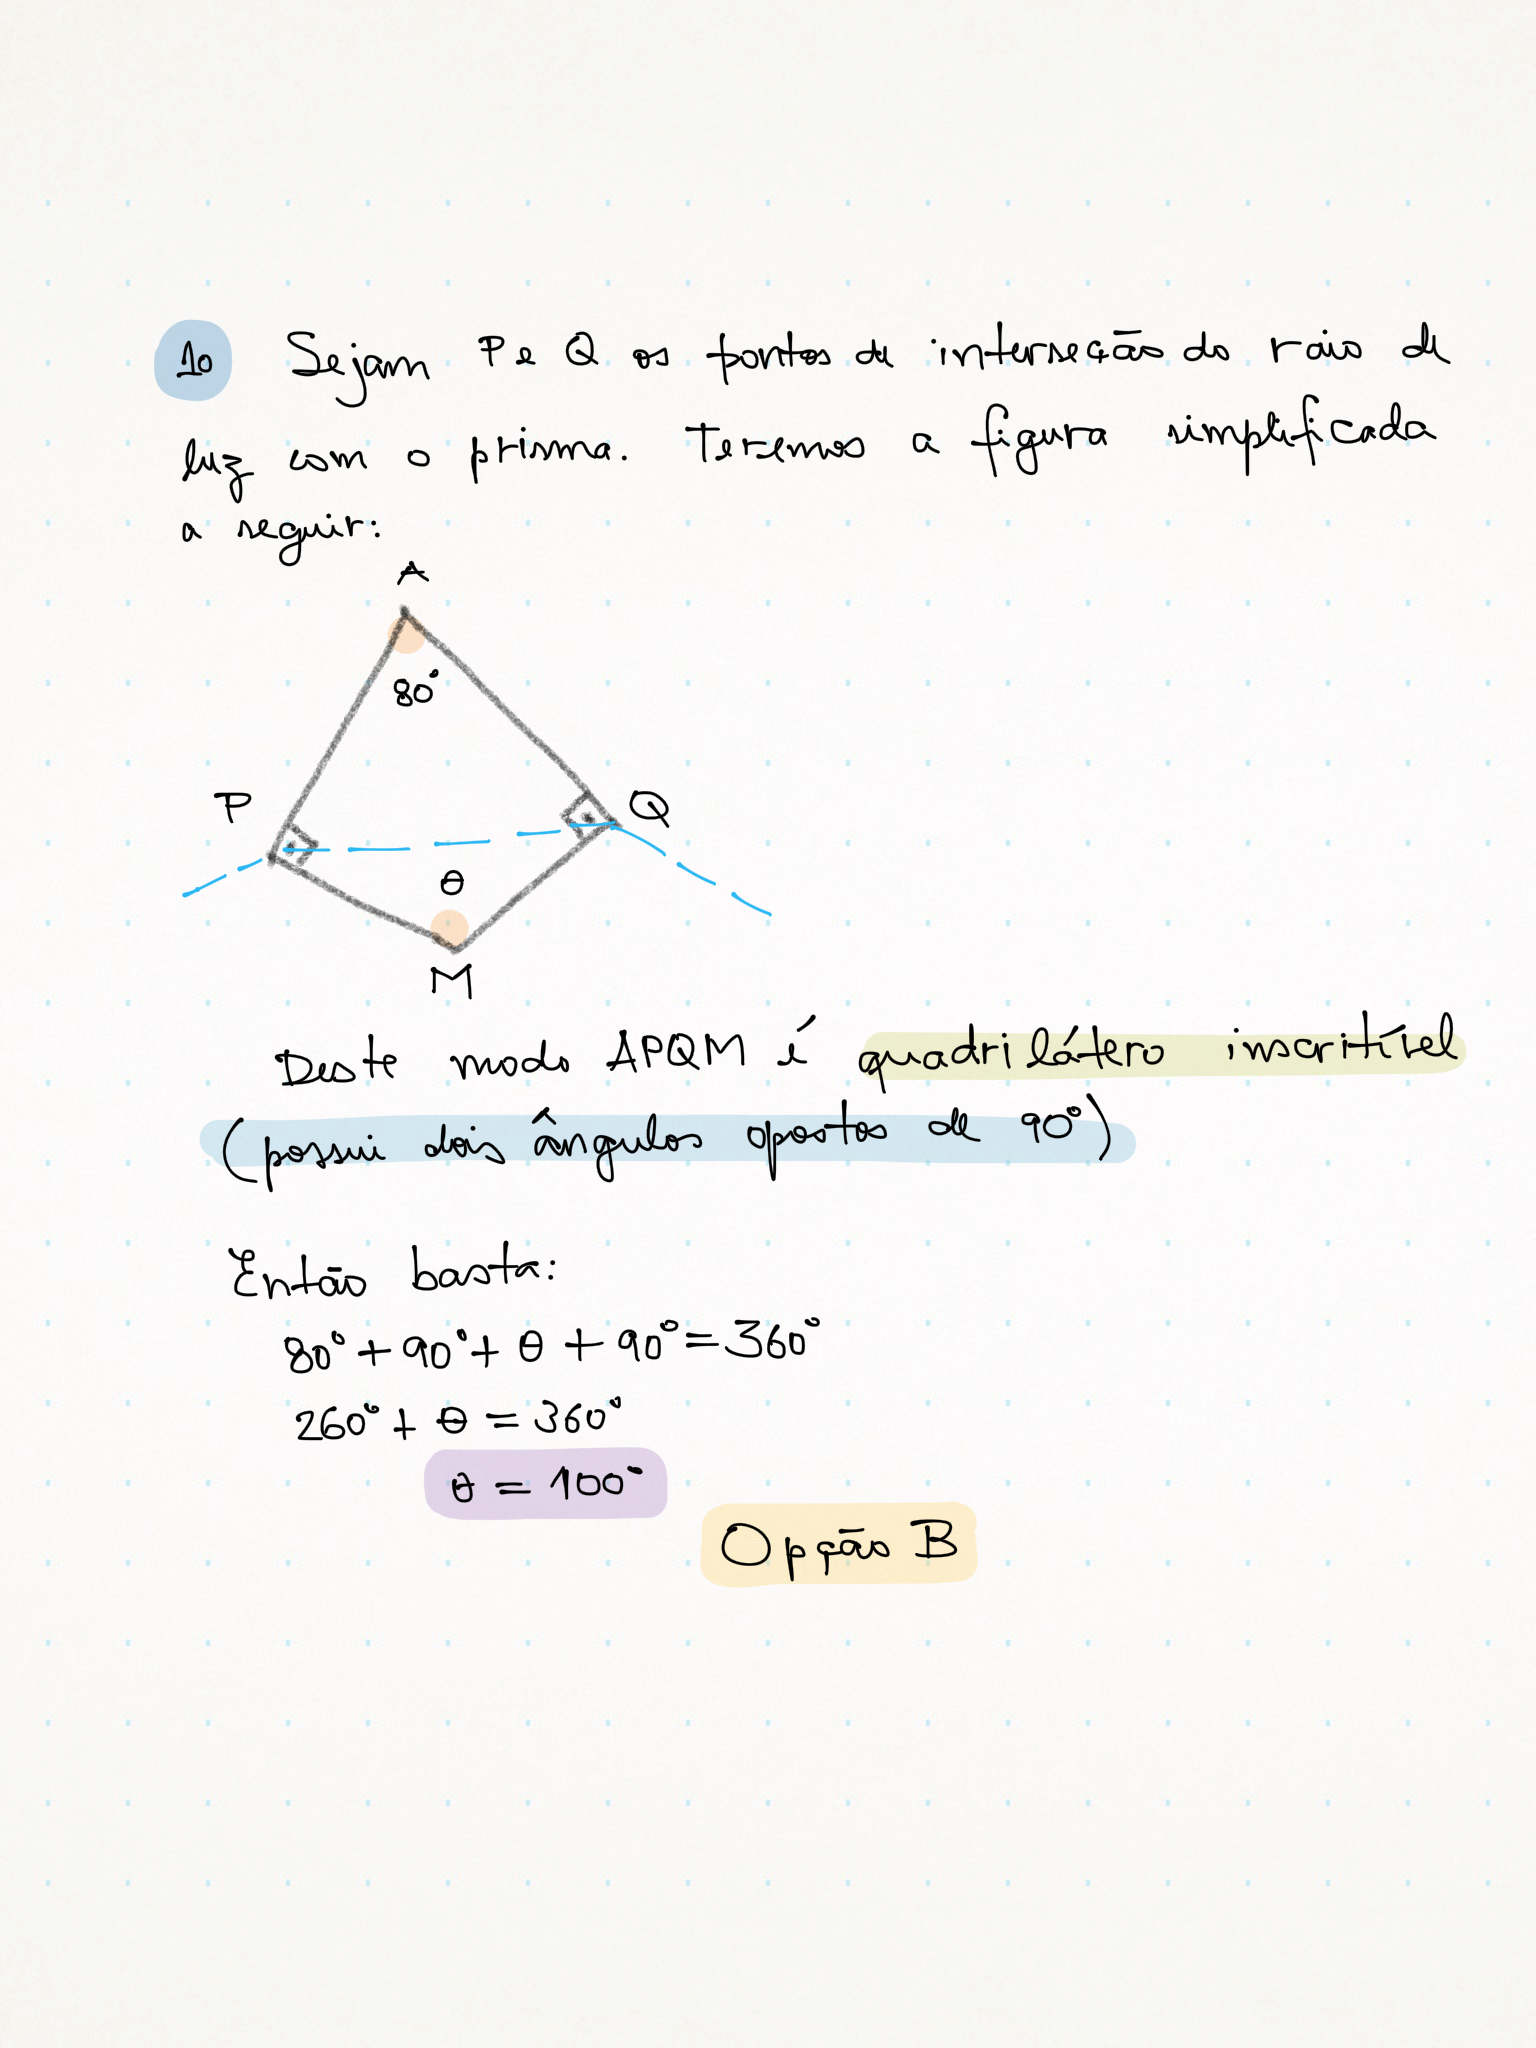 10 Sejam P e Q os pontos de interseção do raio de
luz com o prisma. Teremos a figura simplificada
a seguir:
A
80°
P
Q
θ
M
Deste modo APQM é quadrilátero inscritível
(possui dois ângulos opostos de 90°)
Então basta:
80° + 90° + θ + 90° = 360°
260° + θ = 360°
θ = 100°
Opção B